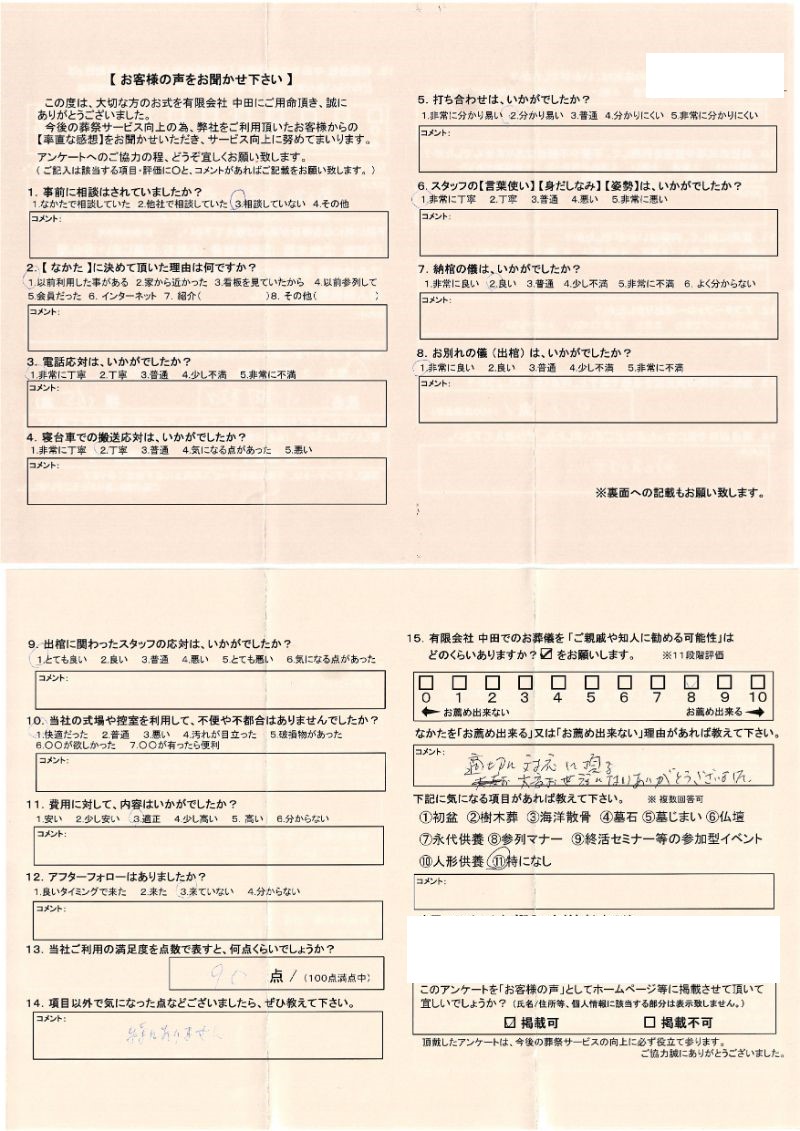 【 お客様の声をお聞かせ下さい 】
この度は、大切な方のお式を有限会社 中田にご用命頂き、誠に
ありがとうございました。
今後の葬祭サービス向上の為、弊社をご利用頂いたお客様からの
【率直な感想】をお聞かせいただき、サービス向上に努めてまいります。
アンケートへのご協力の程、どうぞ宜しくお願い致します。
( ご記入は該当する項目・評価に〇と、コメントがあればご記載をお願い致します。 )
1. 事前に相談はされていましたか？
1.なかたで相談していた 2.他社で相談していた 3.相談していない 4.その他
コメント：
2. 【 なかた 】に決めて頂いた理由は何ですか？
1.以前利用した事がある 2.家から近かった 3.看板を見ていたから 4.以前参列して
5.会員だった 6. インターネット 7. 紹介( )8. その他( )
コメント：
3. 電話応対は、いかがでしたか？
1.非常に丁寧 2.丁寧 3.普通 4.少し不満 5.非常に不満
コメント：
4. 寝台車での搬送応対は、いかがでしたか？
1.非常に丁寧 2.丁寧 3.普通 4.気になる点があった 5.悪い
コメント：
5. 打ち合わせは、いかがでしたか？
1.非常に分かり易い 2.分かり易い 3.普通 4.分かりにくい 5.非常に分かりにくい
コメント：
6. スタッフの【言葉使い】【身だしなみ】【姿勢】は、いかがでしたか？
1.非常に丁寧 2.丁寧 3.普通 4.悪い 5.非常に悪い
コメント：
7. 納棺の儀は、いかがでしたか？
1.非常に良い 2.良い 3.普通 4.少し不満 5.非常に不満 6. よく分からない
コメント：
8. お別れの儀 (出棺) は、いかがでしたか？
1.非常に良い 2.良い 3.普通 4.少し不満 5.非常に不満
コメント：
※裏面への記載もお願い致します。
9. 出棺に関わったスタッフの応対は、いかがでしたか？
1.とても良い 2.良い 3.普通 4.悪い 5.とても悪い 6.気になる点があった
コメント：
10. 当社の式場や控室を利用して、不便や不都合はありませんでしたか？
1.快適だった 2.普通 3.悪い 4.汚れが目立った 5.破損物があった
6.〇〇が欲しかった 7.〇〇が有ったら便利
コメント：
11. 費用に対して、内容はいかがでしたか？
1.安い 2.少し安い 3.適正 4.少し高い 5. 高い 6.分からない
コメント：
12. アフターフォローはありましたか？
1.良いタイミングで来た 2.来た 3.来ていない 4.分からない
コメント：
13. 当社ご利用の満足度を点数で表すと、何点くらいでしょうか？
90 点 / (100点満点中)
14. 項目以外で気になった点などございましたら、ぜひ教えて下さい。
コメント：
特にありません
15. 有限会社 中田でのお葬儀を「ご親戚や知人に勧める可能性」は
どのくらいありますか？☑ をお願いします。 ※11段階評価
0 1 2 3 4 5 6 7 8 9 10
お薦め出来ない お薦め出来る
なかたを「お薦め出来る」又は「お薦め出来ない」理由があれば教えて下さい。
コメント：
適切に対応に
大変お世話になりありがとうございました
下記に気になる項目があれば教えて下さい。 ※ 複数回答可
①初盆 ②樹木葬 ③海洋散骨 ④墓石 ⑤墓じまい ⑥仏壇
⑦永代供養 ⑧参列マナー ⑨終活セミナー等の参加型イベント
⑩人形供養 ⑪特になし
コメント：
このアンケートを「お客様の声」としてホームページ等に掲載させて頂いて
宜しいでしょうか？ (氏名/住所等、個人情報に該当する部分は表示致しません。)
☑ 掲載可 □ 掲載不可
頂戴したアンケートは、今後の葬祭サービスの向上に必ず役立て参ります。
ご協力誠にありがとうございました。